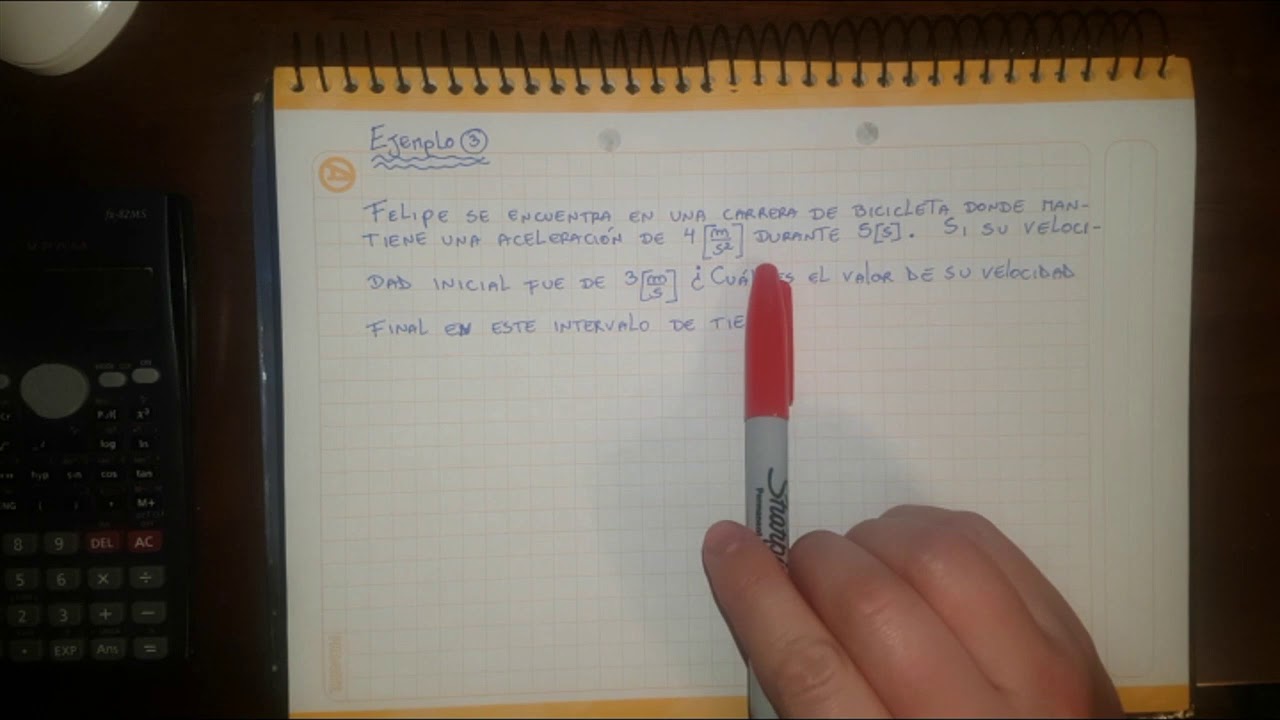 Ejemplo 3
FELIPE SE ENCUENTRA EN UNA CARRERA DE BICICLETA DONDE MAN-
TIENE UNA ACELERACIÓN DE 4 [m/s²] DURANTE 5[s]. SI SU VELOCI-
DAD INICIAL FUE DE 3[m/s] ¿CUÁL ES EL VALOR DE SU VELOCIDAD
FINAL EN ESTE INTERVALO DE TIE
A
fx-82MS
log ln
hyp sin cos tan
ENG ( ) , M+
8 9 DEL AC
5 6 × ÷
2 3 + −
· EXP Ans =
Sharpie
Permanent